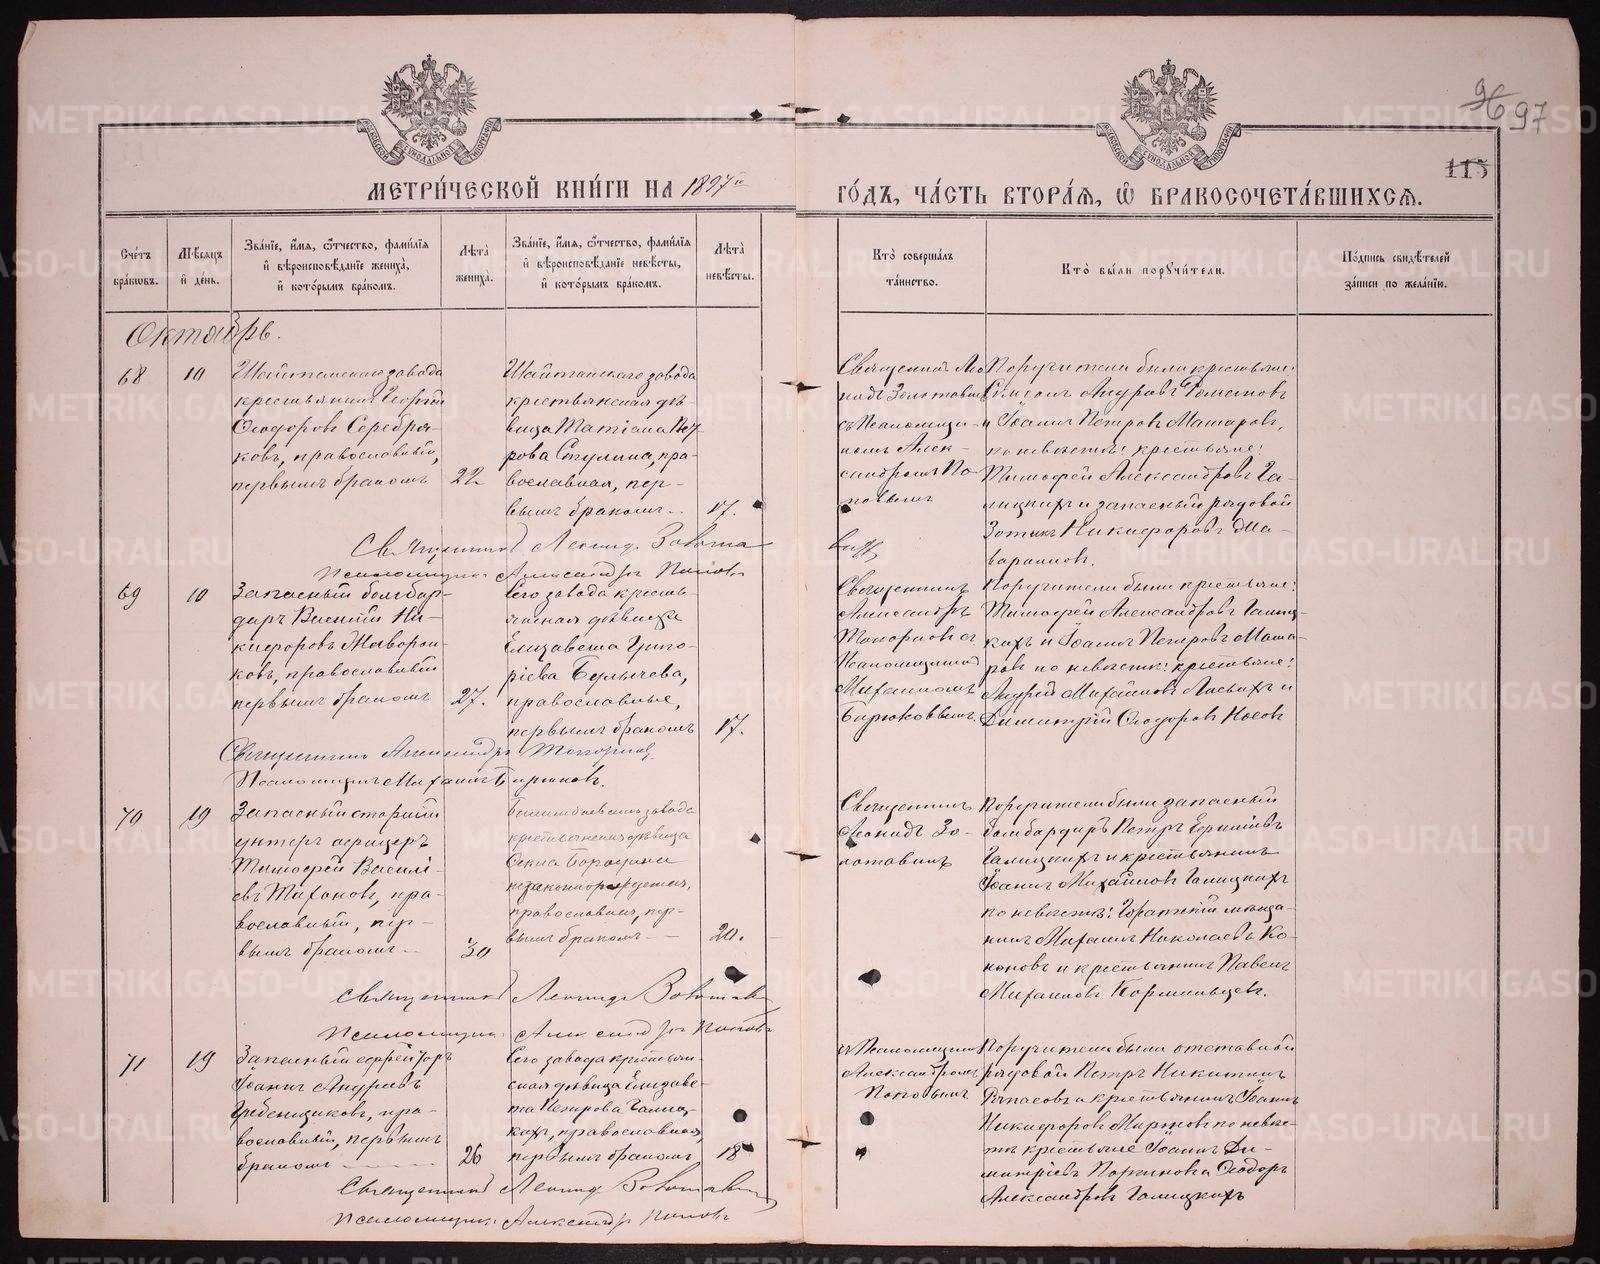 96 97
115
МЕТРИЧЕСКОЙ КНИГИ НА 1897й ГОДЪ, ЧАСТЬ ВТОРАЯ, Ѿ БРАКОСОЧЕТАВШИХСЯ.
МОСКОВСКОЙ СѴНОДАЛЬНОЙ ТИПОГРАФІИ
МОСКОВСКОЙ СѴНОДАЛЬНОЙ ТИПОГРАФІИ
Счетъ браковъ.
Мѣсяцъ и день.
Званіе, имя, отчество, фамилія и вѣроисповѣданіе жениха, и которымъ бракомъ.
Лѣта жениха.
Званіе, имя, отчество, фамилія и вѣроисповѣданіе невѣсты, и которымъ бракомъ.
Лѣта невѣсты.
Кто совершалъ таинство.
Кто были поручители.
Подпись свидѣтелей записи по желанію.
Октябрь.
68
10
Шайтанскаго завода
крестьянинъ Георгій
Ѳеодоровъ Серебря-
ковъ, православный,
первымъ бракомъ
22
Шайтанскаго завода
крестьянская дѣ-
вица Татіана Пет-
рова Стулина, пра-
вославная, пер-
вымъ бракомъ
17.
Священникъ Лео
нидъ Золотавинъ
съ Псаломщи-
комъ Алек-
сандромъ По-
повымъ
Поручители были крестьяне:
и Іоаннъ Петровъ Макаровъ,
по невѣстѣ: крестьяне:
Тимофей Александровъ Га-
лицкихъ и запасный рядовой
Зотикъ Никифоровъ
Священникъ Леонидъ Золота
Псаломщикъ Александръ Поповъ
69
10
Запасный бомбар-
диръ Василій Ни-
кифоровъ
ковъ, православный
первымъ бракомъ
27.
Сего завода кресть-
янская дѣвица
Елизавета Григо-
ріева Булычева,
православные,
первымъ бракомъ
17.
Священникъ
Александръ
Топорковъ съ
Псаломщикомъ
Михаиломъ
Бирюковымъ.
Поручители были крестьяне:
Тимофей Александровъ Галиц-
кихъ и Іоаннъ Петровъ Мака-
ровъ по невѣстѣ: крестьяне:
Андрей Михайловъ и
Димитрій Ѳеодоровъ Носовъ
Священникъ Александръ Топорковъ
Псаломщикъ Михаилъ Бирюковъ.
70
19
Запасный старшій
унтеръ офицеръ
Тимофей Василі-
евъ Тихоновъ, пра-
вославный, пер-
вымъ бракомъ
30
Билимбаевскаго завода
крестьянская дѣвица
Ѳекла Бородина
незаконнорожденая,
православная, пер-
вымъ бракомъ
20.
Священникъ
Леонидъ Зо-
лотавинъ
Поручители были запасный
бомбардиръ Петръ
Галицкихъ и крестьянинъ
Іоаннъ Михайловъ Галицкихъ
по невѣстѣ: мѣща-
нинъ Михаилъ Николаевъ Ко-
коновъ и крестьянинъ Павелъ
Михаиловъ Кормильцевъ.
Священникъ Леонидъ Золотавинъ
Псаломщикъ Александръ Поповъ
71
19
Запасный ефрейторъ
Іоаннъ Андреевъ
Гребенщиковъ, пра-
вославный, первымъ
бракомъ
26
Сего завода крестьян-
ская дѣвица Елизаве-
та Петрова Галиц-
кихъ, православная,
первымъ бракомъ
18
съ Псаломщикомъ
Александромъ
Поповымъ
Поручители были отставной
рядовой Петръ Никитинъ
и крестьянинъ Іоаннъ
Никифоровъ по невѣс-
тѣ крестьяне Іоаннъ Ди-
митріевъ и Ѳеодоръ
Александровъ Галицкихъ
Священникъ Леонидъ Золотавинъ
Псаломщикъ Александръ Поповъ
METRIKI.GASO-URAL.RU